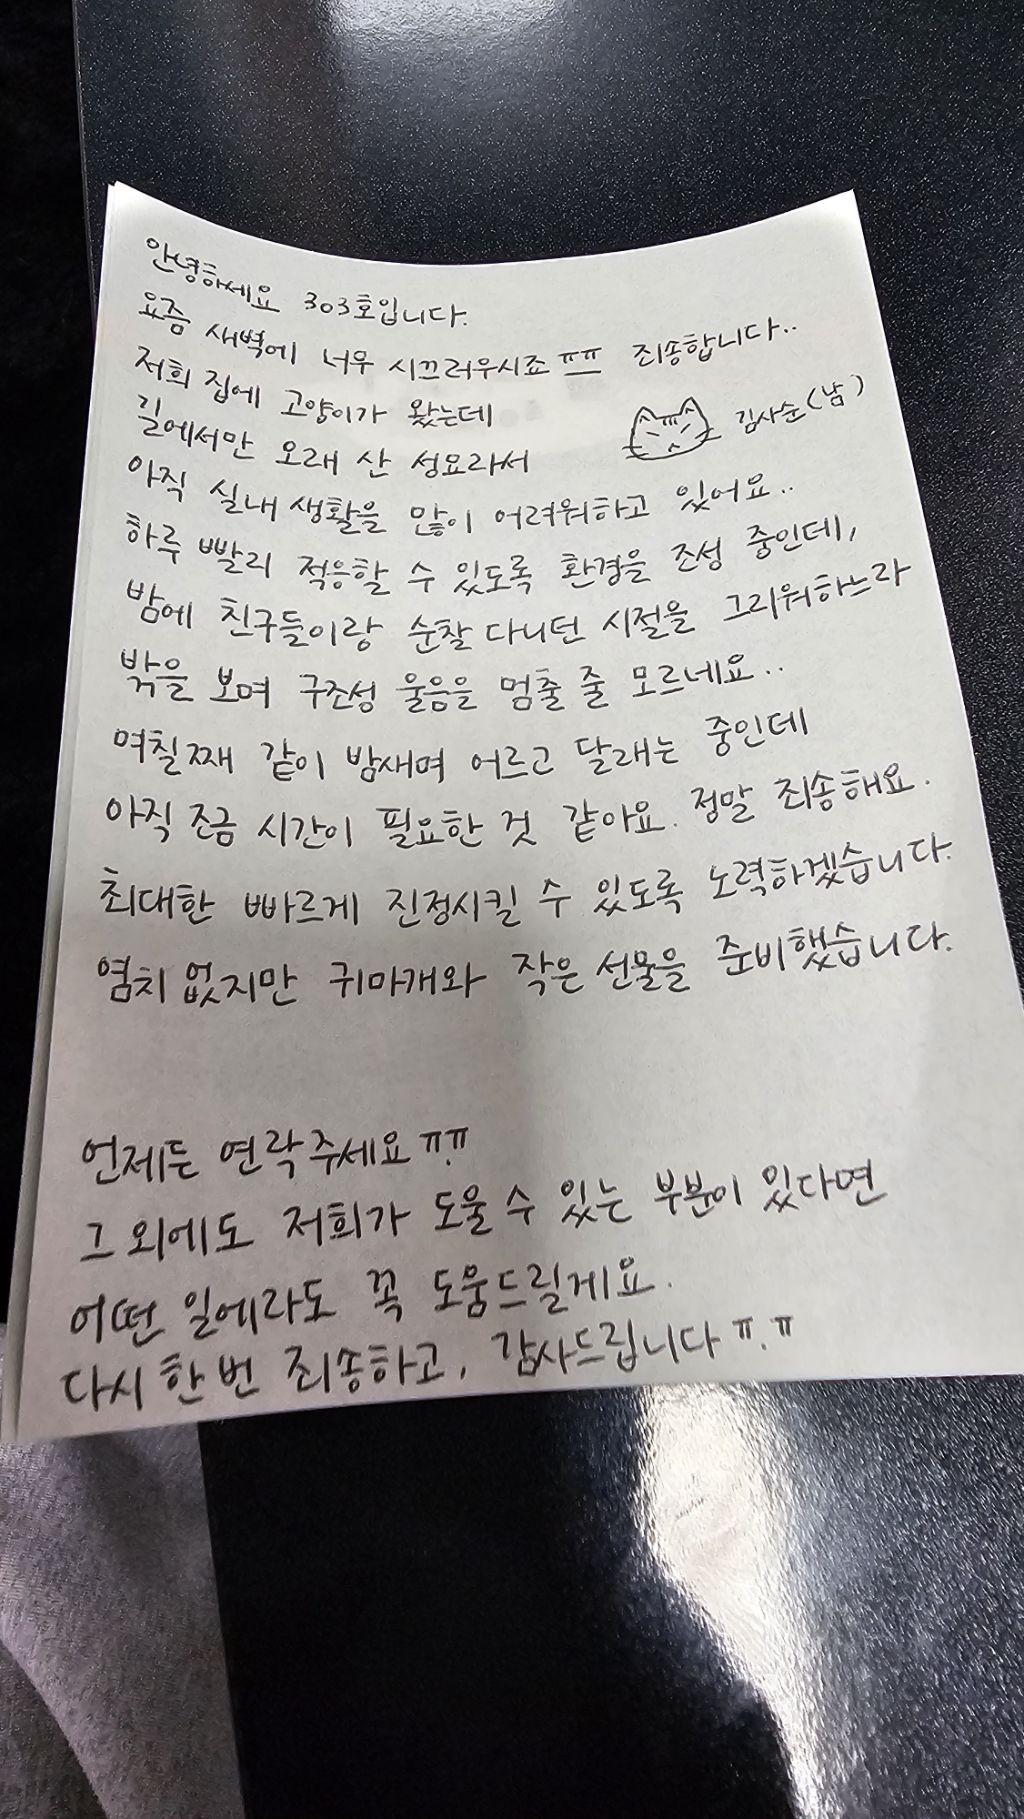 안녕하세요 303호입니다.
요즘 새벽에 너무 시끄러우시죠 ㅠㅠ 죄송합니다..
저희 집에 고양이가 왔는데
김사순(남)
길에서만 오래 산 성묘라서
아직 실내 생활을 많이 어려워하고 있어요..
하루 빨리 적응할 수 있도록 환경을 조성 중인데,
밤에 친구들이랑 순찰 다니던 시절을 그리워하느라
밖을 보며 구조성 울음을 멈출 줄 모르네요..
며칠째 같이 밤새며 어르고 달래는 중인데
아직 조금 시간이 필요한 것 같아요. 정말 죄송해요.
최대한 빠르게 진정시킬 수 있도록 노력하겠습니다.
염치 없지만 귀마개와 작은 선물을 준비했습니다.
언제든 연락주세요 ㅠ.ㅠ
그 외에도 저희가 도울 수 있는 부분이 있다면
어떤 일에라도 꼭 도움드릴게요.
다시 한 번 죄송하고, 감사드립니다 ㅠ.ㅠ